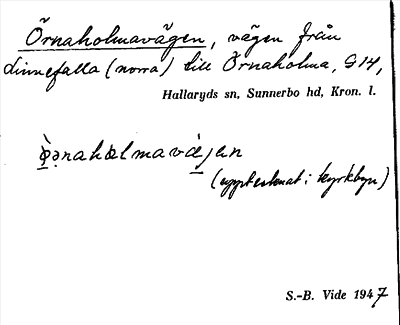 Örnaholmavägen, vägen från
Linnefalla (norra) till Örnaholma, G14,
Hallaryds sn, Sunnerbo hd, Kron. l.
(upptecknat i kyrkbyn)
S.-B. Vide 1947